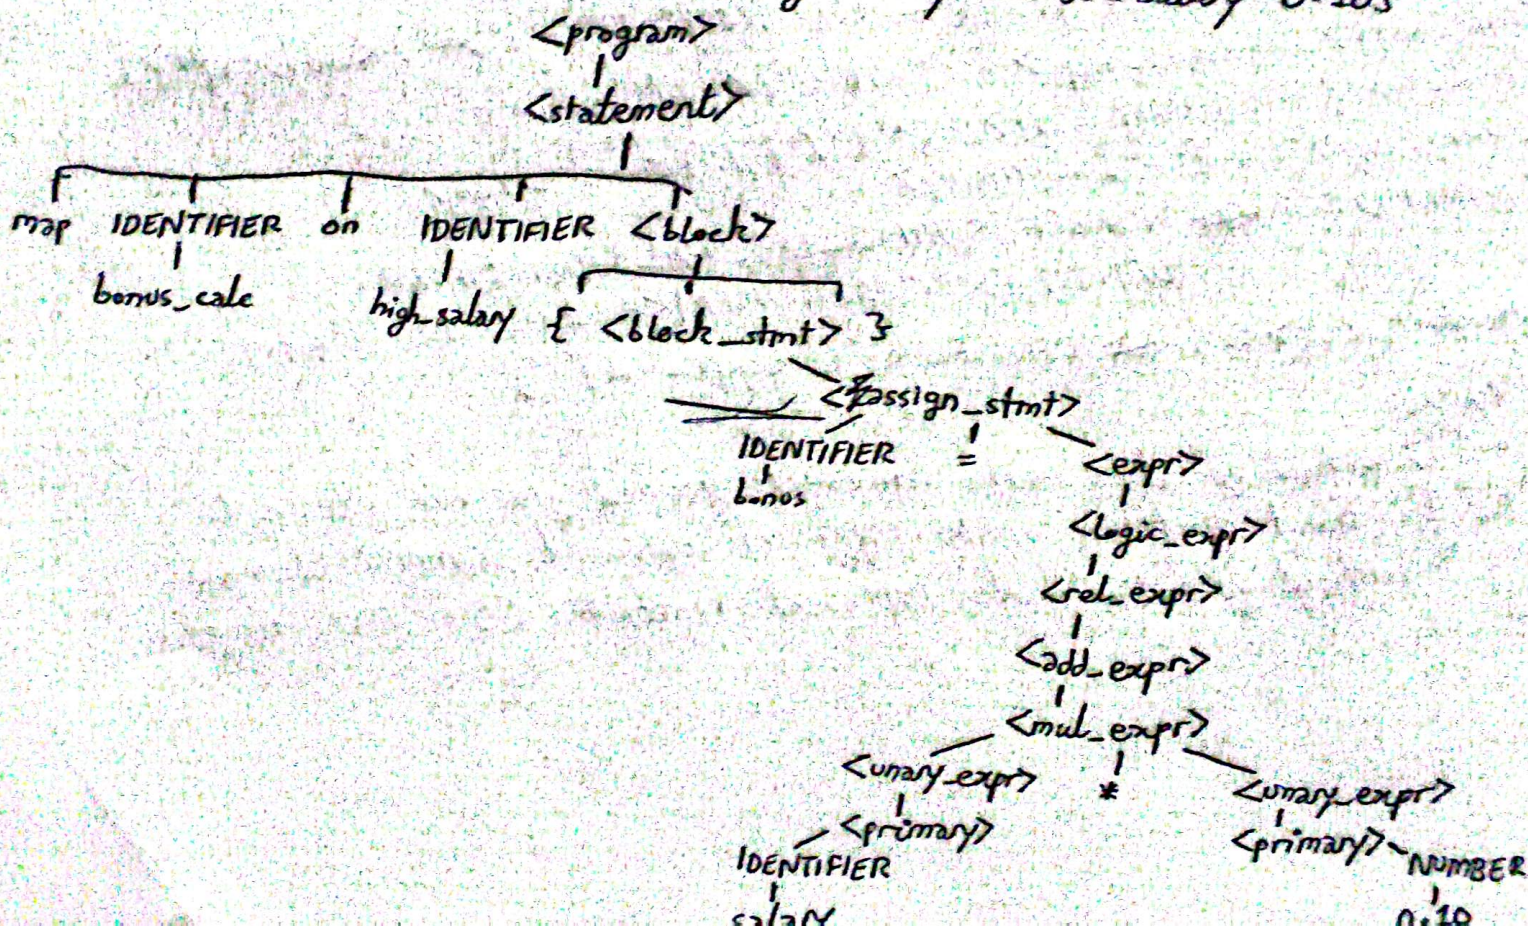 0.10}
<program>
<statement>
map IDENTIFIER on IDENTIFIER <block>
bonus_calc high_salary { <block_stmt> }
<assign_stmt>
IDENTIFIER = <expr>
bonus
<logic_expr>
<rel_expr>
<add_expr>
<mul_expr>
<unary_expr> * <unary_expr>
<primary> <primary> NUMBER
IDENTIFIER
salary 0.10